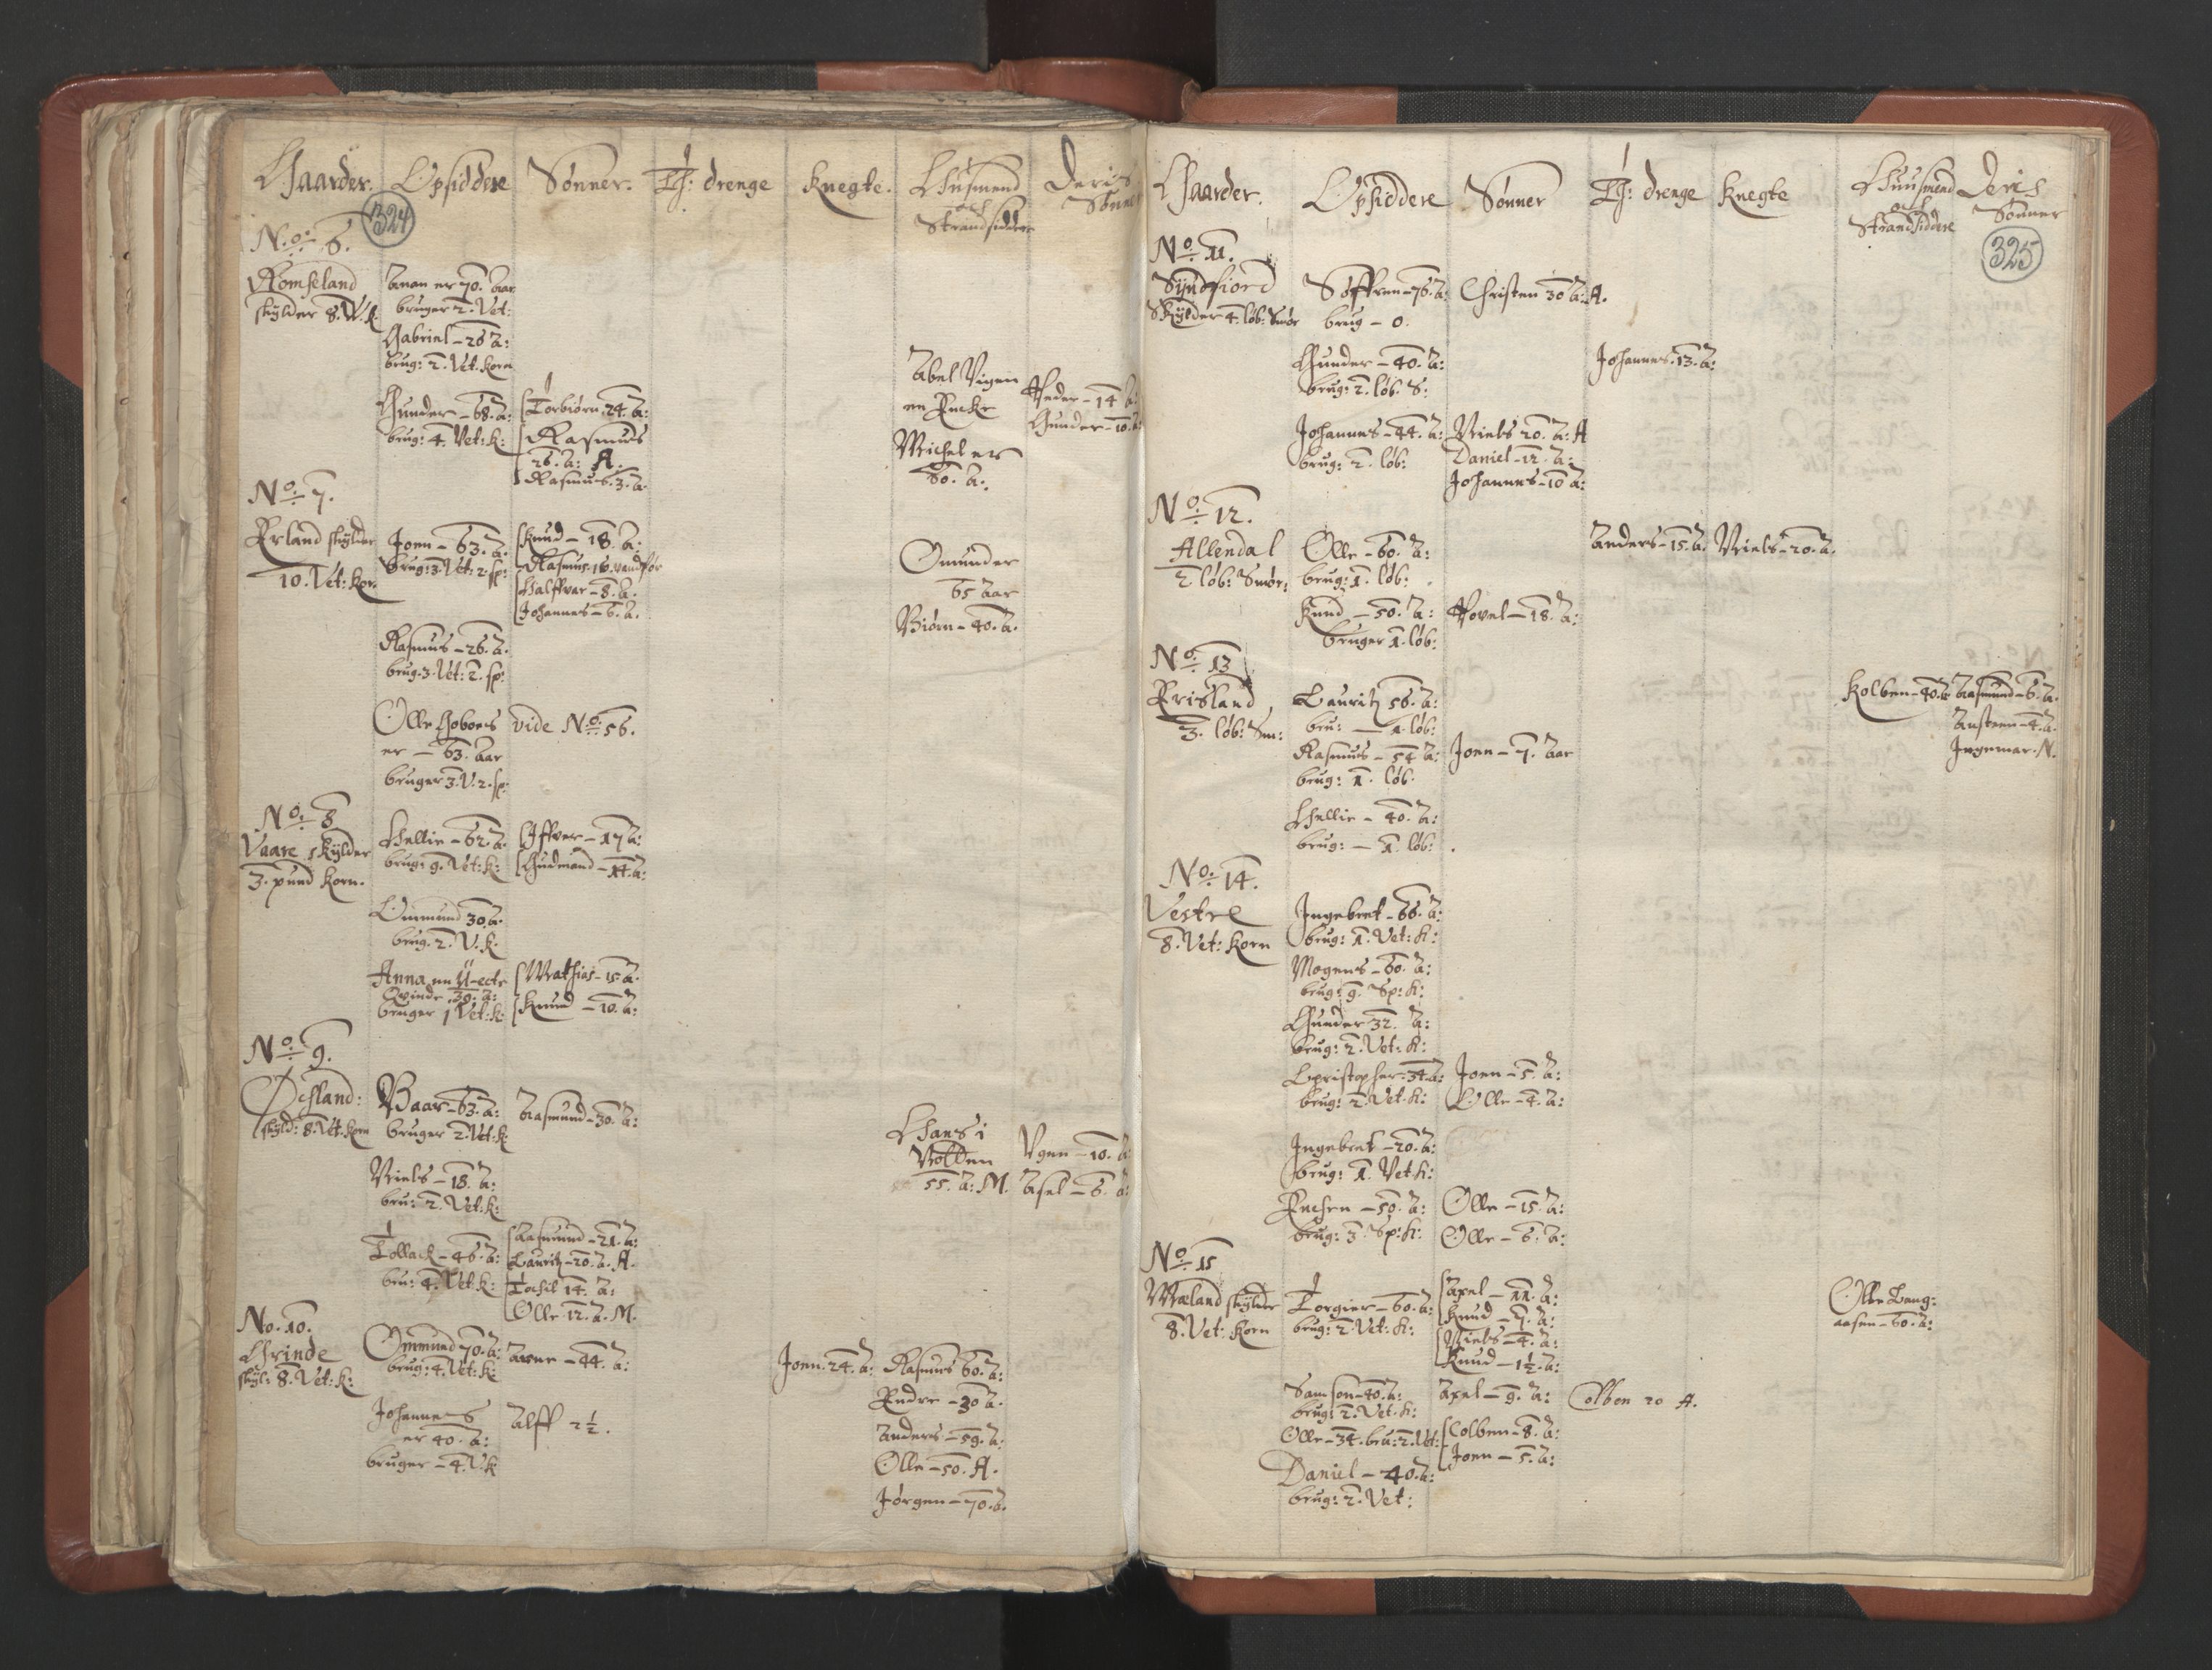 Gaarder. Opsiddere Sønner. Tj: drenge Knegte. Huusmend och Strandsiddere Deris Sønner
324
No. 6.
Romseland
skylder 8. V. k.
Anan er 70. Aar
bruger 2. Vet:
Gabriel – 26 a:
brug: 2. Vet. korn
Gunder – 68. a:
brug: 4. Vet: k:
Torbiørn 24. a:
Rasmus
26. a: A.
Rasmus. 3. a.
Abel Vigen
en Encke
Peder – 14 a:
Gunder – 10. a:
Michel er
80. a.
No. 7.
Erland skylder
10. Vet: kor.
Joen – 63. a.
brug: 3. Vet: 2. sp:
Knud – 18. a:
Rasmus. 16. vandfør
Halffvar – 8. a.
Johannes – 6. a.
Omunder
65 aar
Biørn – 40. a.
Rasmus – 26. a.
brug. 3. Vet: 2. sp:
Olle Hoboers vide No. 56.
er – 63. Aar
bruger 3. V. 2. sp:
No. 8
Vaare skylder
3. pund korn.
Hellie – 62. a.
brug: 9. Vet: k:
Iffver – 17 a:
Gudmand – 14. a:
Ommund 30. a.
brug. 2. V. k.
Anna en
Qvinde 39. a:
bruger 1 Vet: k:
Mathias – 15 a.
Knud – 10. a:
No. 9.
Øesland:
skyld: 8. Vet. korn
Baar – 63. a:
bruger 2. Vet: k:
Aasmund – 30. a:
Niels – 18. a:
bru: 2. Vet: k:
Hans i
Votten
55. a: M.
Ugen – 10. a:
Asel – 6. a:
Tollack – 46. a:
bru: 4. Vet: k:
Aasmund – 21. a:
Lauritz – 20. a. A.
Torkil 14. a:
Olle 12. a. M.
No. 10.
Grinde
skyl: 8. Vet: k:
Ommund 70. a:
brug: 4. Vet: k:
Aane – 44. a:
Joen. 24. a:
Rasmus 60. a:
Endre – 30 a.
Johannes
er 40. a:
bruger – 4. V. k
Alff 2 ½.
Anders – 59. a:
Olle – 50. A.
Jørgen – 70. a.
Gaarder. Opsiddere Sønner Tj: drenge Knegte Huusmend och Strandsiddere Deris Sønner
325
No. 11.
Syndfiord
Skylder 4. løb: Smør
Søffren – 76. a:
brug – 0.
Christen 30 a: A.
Gunder – 40. a:
brug: 2. løb. S:
Johannes. 13. a:
Johannes – 44. a:
brug: 2. løb:
Niels 20. a: A
Daniel – 12. a:
Johannes – 10 a:
No. 12.
Allendal
2 løb: Smør:
Olle – 60. a:
brug: 1. løb:
Anders – 15. a. Niels – 20. a.
Knud – 50. a:
bruger 1. løb:
Povel – 18. a:
No. 13
Erisland
3. løb: Sm:
Lauritz 56. a:
bru: – 1. løb:
Kolben – 40. a. Aasmund – 6. a.
Austeen – 4. a.
Ingemar. N.
Rasmus – 54 a:
brug: 1. løb.
Joen – 7. Aar
Hellie – 40. a:
brug: – 1. løb:
No. 14.
Vestre
8. Vet: Korn
Ingebret – 66. a:
brug: 1. Vet: k:
Mogens – 60. a:
brug: 9. Sp: k:
Gunder 32. a:
brug: 2. Vet: k:
Christopher. 34. a:
brug: 2. Vet. k:
Joen – 5. a:
Olle – 4. a:
Ingebret – 20. a:
brug: 1. Vet k:
– 50. a:
brug: 3. Sp: k:
Olle – 15. a:
Olle – 6. a:
No. 15
Mæland skylder
8. Vet: Korn
Torgier – 60. a:
brug: 2. Vet: k:
Axel – 11. a:
Knud – 7. a:
Niels – 4. a:
Knud – 1 ½. a:
Olle Lang:
aasen – 60. a:
Samson – 40. a:
brug: 2. Vet. k:
Axel – 9. a:
Colben 20 A.
Olle – 34. bru: 2. Vet:
Colben – 8. a:
Joen – 5. a:
Daniel – 40. a:
brug: 2. Vet: